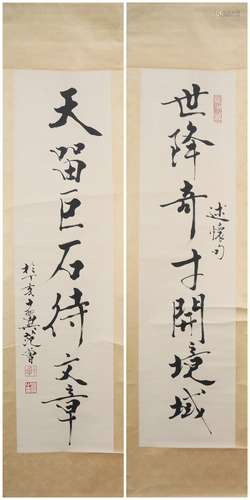 世降奇才開境域
述懷句
天留巨石待文章
十翼范曾